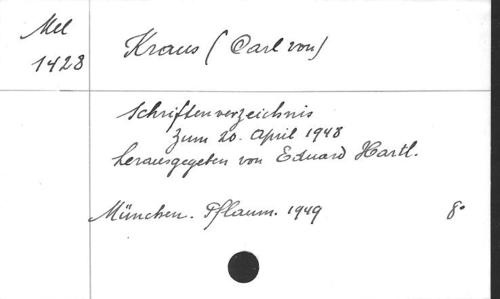 Mel
1428
Kraus (Carl von)
Schriftenverzeichnis
zum 20. April 1948
herausgegeben von Eduard Hartl.
München. Pflaum. 1949 8°